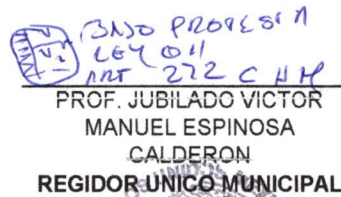 BAJO PROTESTA
LEY
ART 272
PROF. JUBILADO VICTOR
MANUEL ESPINOSA
CALDERON
REGIDOR UNICO MUNICIPAL